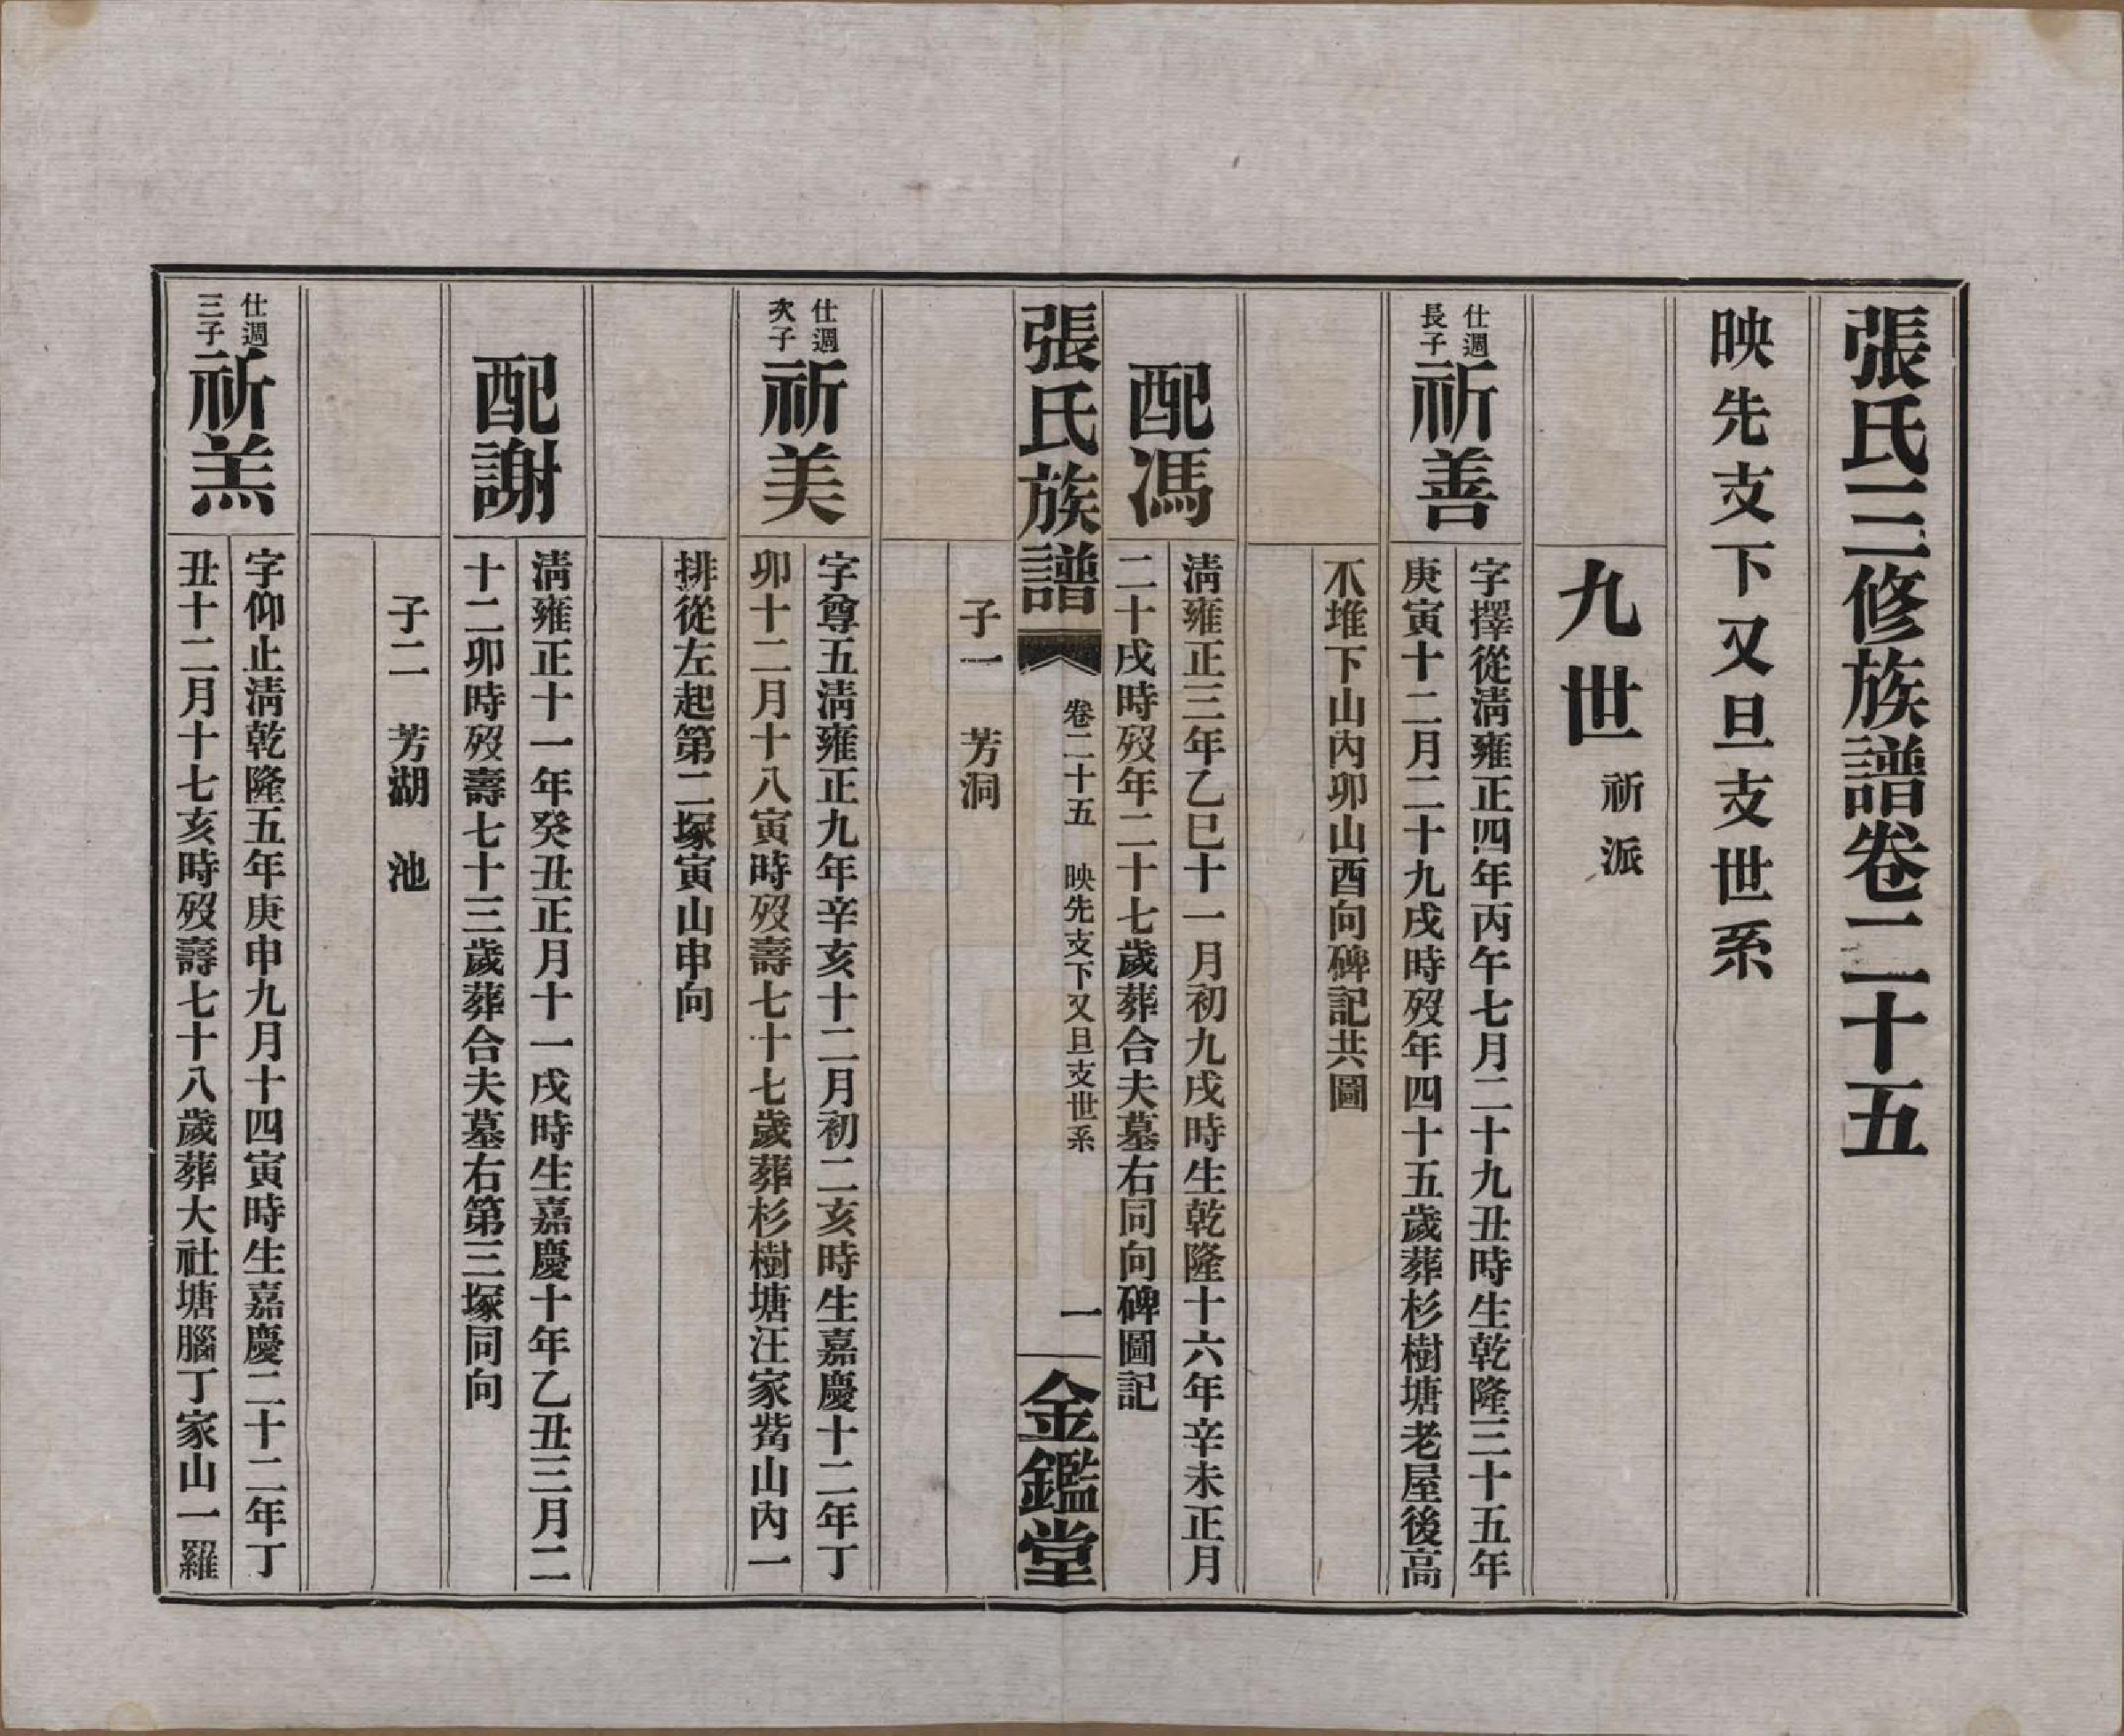 張氏三修族譜卷二十五
映先支下又旦支世系
九世 祈派
仕週長子
祈善
字擇從淸雍正四年丙午七月二十九丑時生乾隆三十五年
庚寅十二月二十九戌時歿年四十五歲葬杉樹塘老屋後高
不堆下山內卯山酉向碑記共圖
配馮
淸雍正三年乙巳十一月初九戌時生乾隆十六年辛未正月
二十戌時歿年二十七歲葬合夫墓右同向碑圖記
張氏族譜
卷二十五 映先支下又旦支世系
一
金鑑堂
子一 芳洞
仕週次子
祈美
字尊五淸雍正九年辛亥十二月初二亥時生嘉慶十二年丁
卯十二月十八寅時歿壽七十七歲葬杉樹塘汪家嵴山內一
排從左起第二塚寅山申向
配謝
淸雍正十一年癸丑正月十一戌時生嘉慶十年乙丑三月二
十二卯時歿壽七十三歲葬合夫墓右第三塚同向
子二 芳湖 池
仕週三子
祈羔
字仰止淸乾隆五年庚申九月十四寅時生嘉慶二十二年丁
丑十二月十七亥時歿壽七十八歲葬大社塘腦丁家山一羅